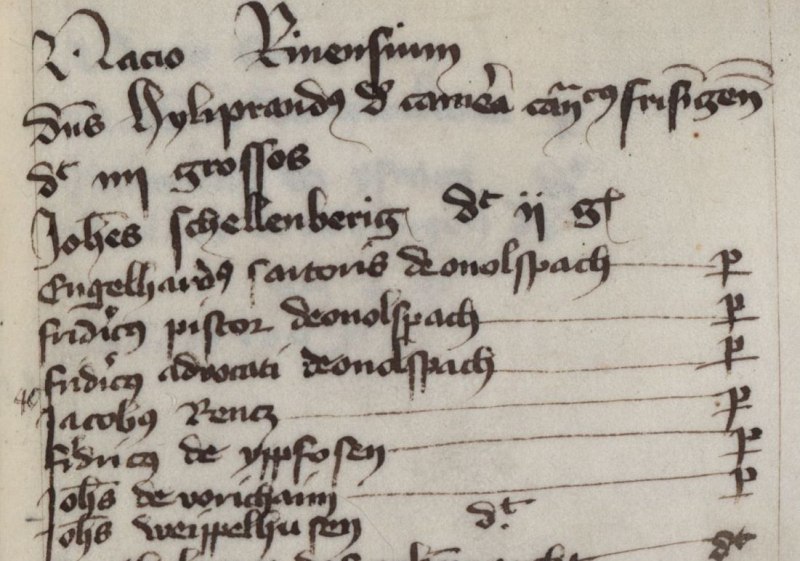 Nacio Rinensium
Dns Hyliprandus de camera canicus frisingen
dt iiij grossos
Johes schellenberig dt ij gl
Engelhardus sartoris de onolspach p
fridricus pistor de onolspach p
fridricus advocati de onolspach p
Jacobus Rencz p
fridricus de yppfosen p
Johs de vorichaim p
Johs weippelhusen dt
dt